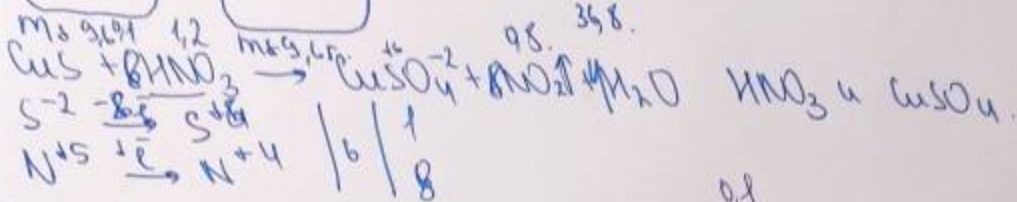 1,2 98. 36,8.
CuS + 8HNO₃ → CuSO₄ + 8NO₂↑ + 4H₂O HNO₃ и CuSO₄.
S⁻² -8e̅ → S⁺⁶ | | 1
N⁺⁵ +e̅ → N⁺⁴ | 6 | 8
0,1